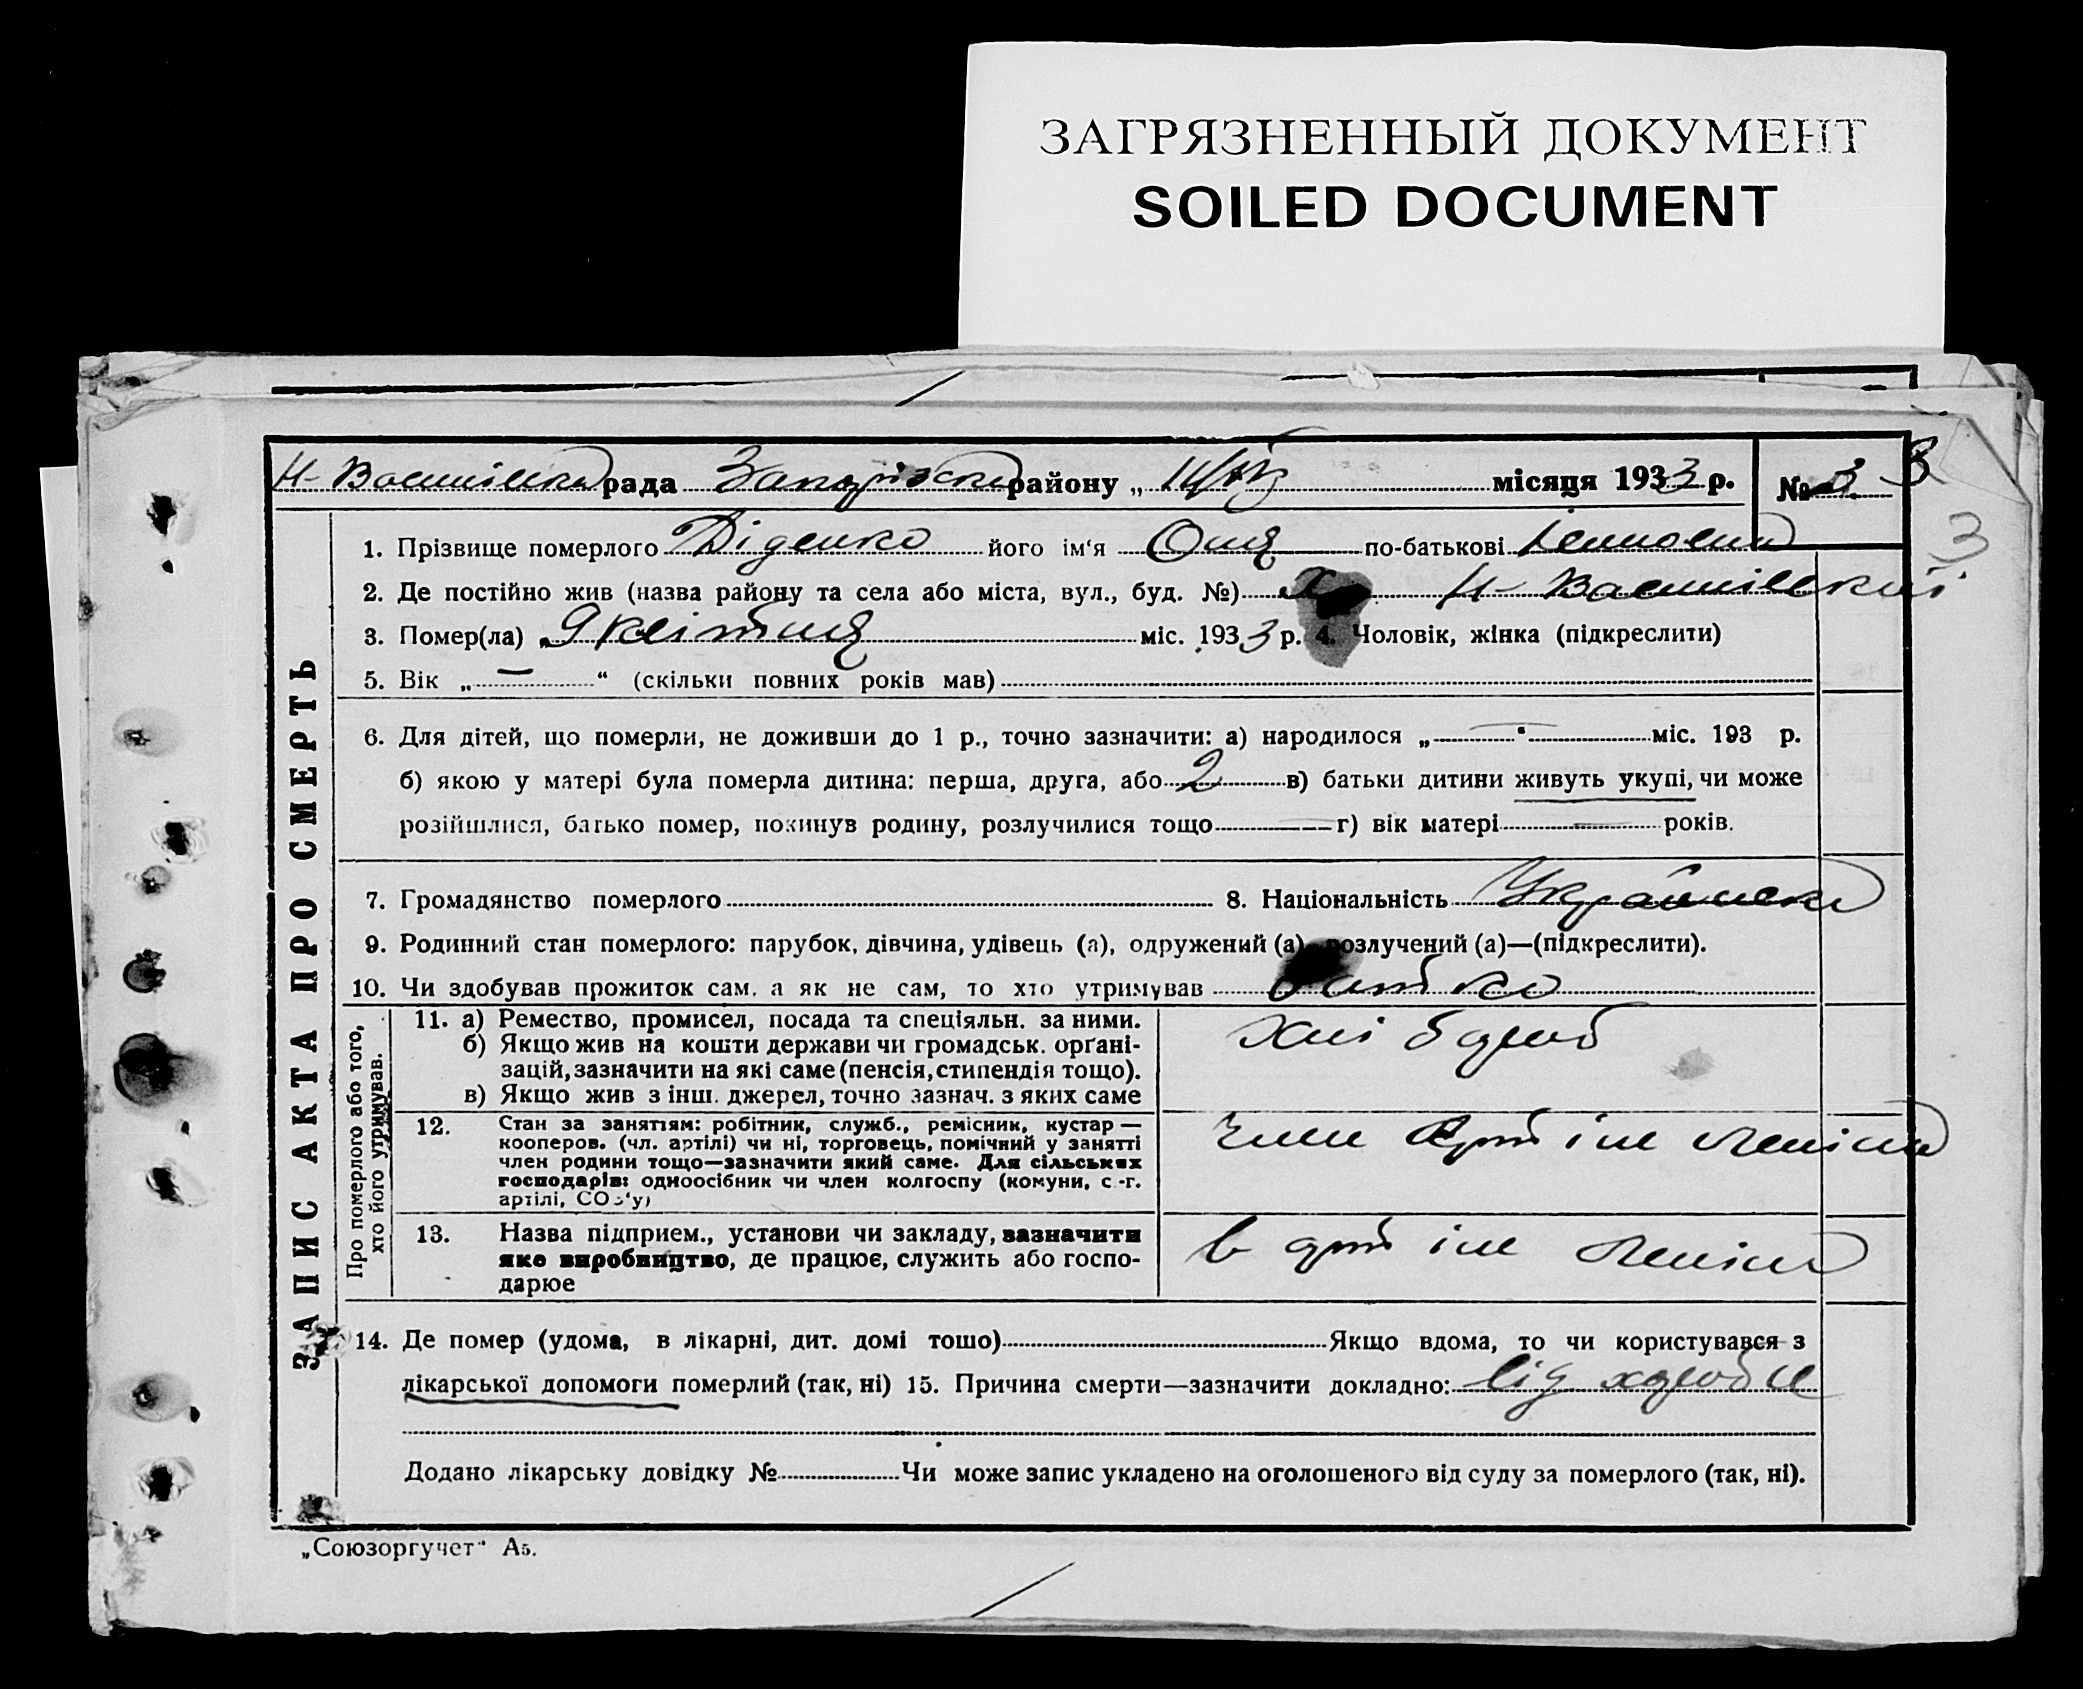 ЗАГРЯЗНЕННЫЙ ДОКУМЕНТ
SOILED DOCUMENT
рада району „ місяця 1933 р. № 3 3
3
1. Прізвище померлого Діденко його ім‘я Оля по-батькові
2. Де постійно жив (назва району та села або міста, вул., буд. №) х. Н-Василівский
3. Помер(ла) „ 9 квітня міс. 1933 р. 4. Чоловік, жінка (підкреслити)
5. Вік „ — “ (скільки повних років мав)
6. Для дітей, що померли, не доживши до 1 р., точно зазначити: а) народилося „ — “ міс. 193 р.
б) якою у матері була померла дитина: перша, друга, або 2 в) батьки дитини живуть укупі, чи може
розійшлися, батько помер, покинув родину, розлучилися тощо — г) вік матері — років.
7. Громадянство померлого 8. Національність Українска
9. Родинний стан померлого: парубок, дівчина, удівець (а), одружений (а), розлучений (а)—(підкреслити).
10. Чи здобував прожиток сам, а як не сам, то хто утримував батько
ЗАПИС АКТА ПРО СМЕРТЬ
Про померлого або того, хто його утримував.
11. а) Ремество, промисел, посада та спеціяльн. за ними.
б) Якщо жив на кошти держави чи громадськ. орґані-
зацій, зазначити на які саме (пенсія, стипендія тощо).
в) Якщо жив з інш. джерел, точно зазнач. з яких саме
хлібороб
12. Стан за заняттям: робітник, служб., ремісник, кустар —
кооперов. (чл. артілі) чи ні, торговець, помічний у занятті
член родини тощо—зазначити який саме. Для сільських
господарів: одноосібник чи член колгоспу (комуни, с.-г.
артілі, СОЗ‘у)
член Арт ім Леніна
13. Назва підприєм., установи чи закладу, зазначити
яке виробництво, де працює, служить або госпо-
дарює
в арт ім Леніна
14. Де помер (удома, в лікарні, дит. домі тощо) Якщо вдома, то чи користувався з
лікарської допомоги померлий (так, ні) 15. Причина смерти—зазначити докладно: від хороби
Додано лікарську довідку № Чи може запис укладено на оголошеного від суду за померлого (так, ні).
„Союзоргучет“ А5.